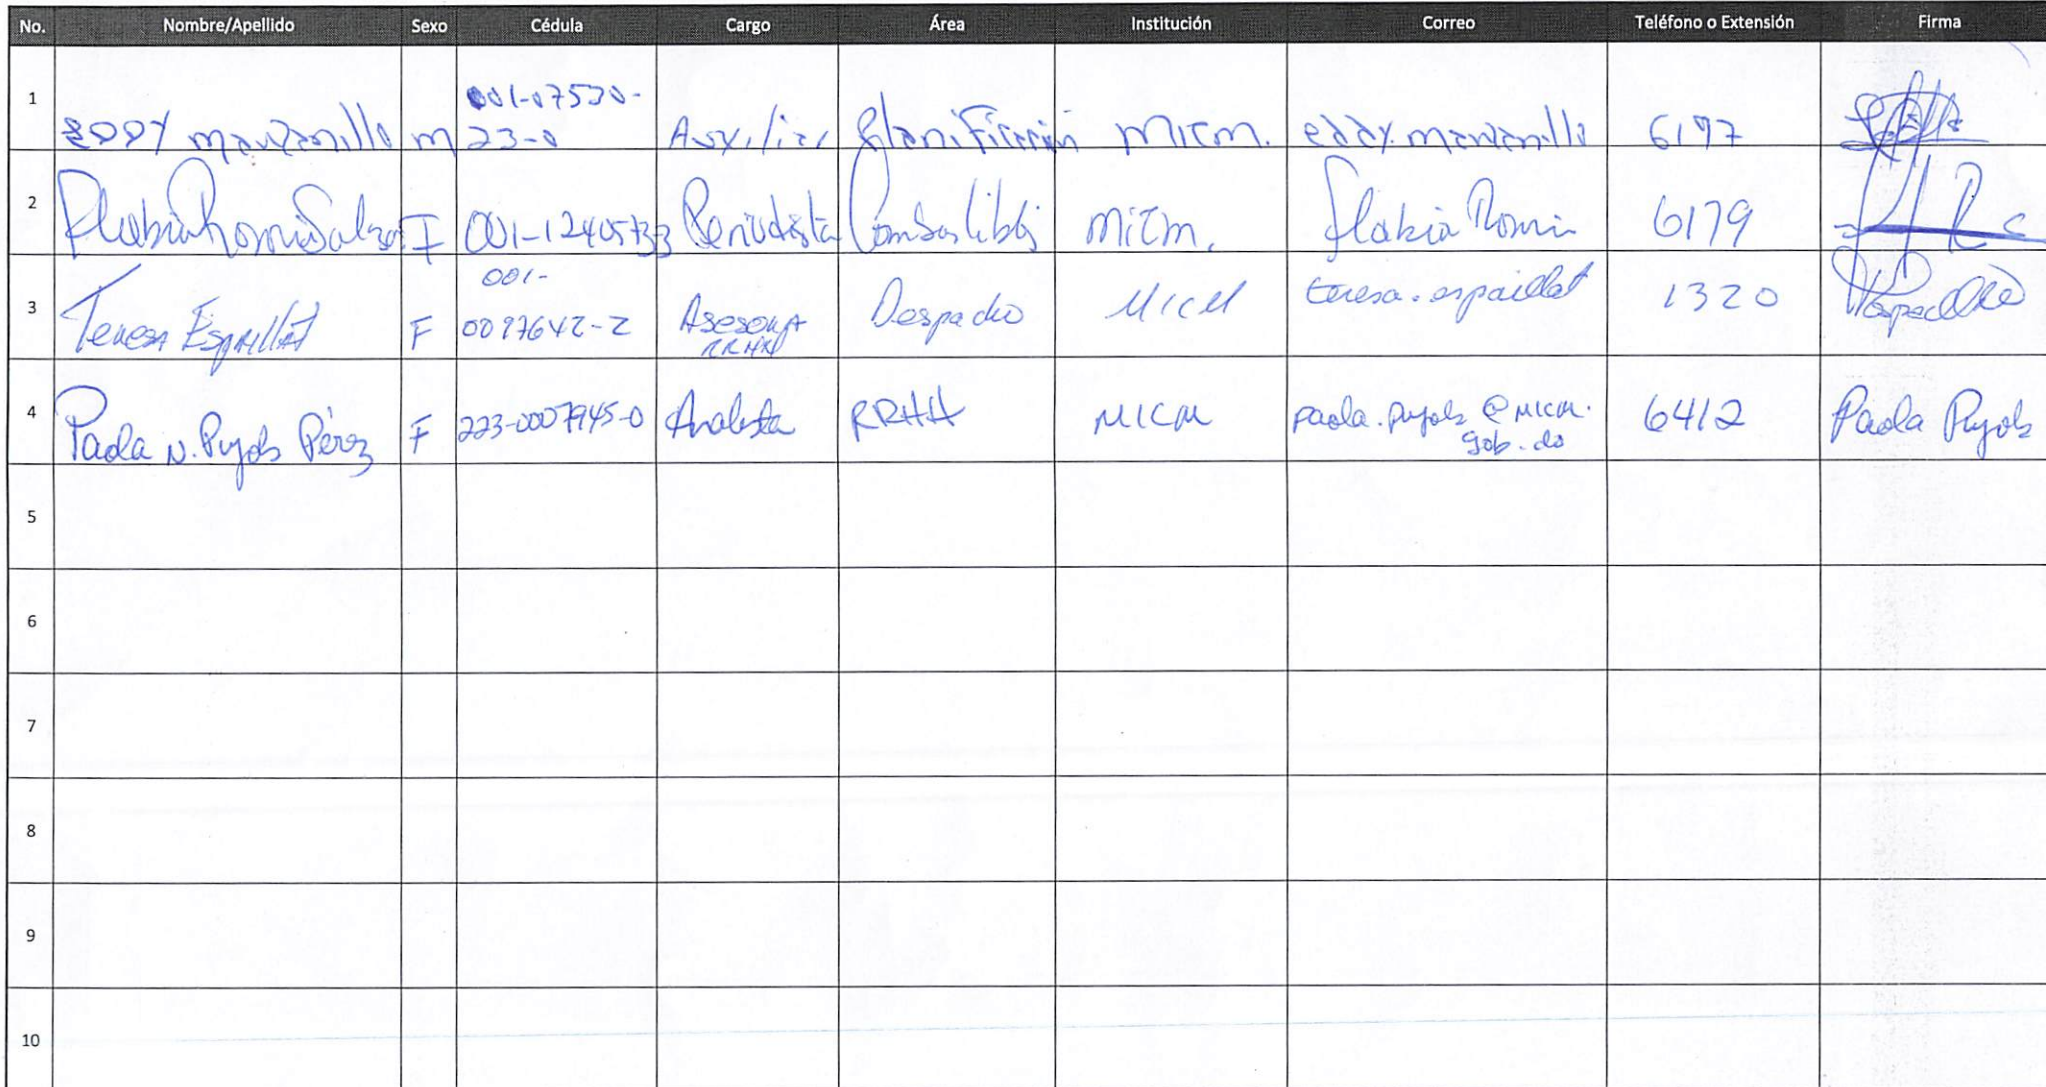 No. Nombre/Apellido Sexo Cédula Cargo Área Institución Correo Teléfono o Extensión Firma
001-07530-
1 EDDY manzanillo m 23-0 Auxiliar Planificación MICM. eddy.manzanillo 6197
2 F 001-12405733 Periodista Combustibles MICM. Flabia Romi 6179
001-
3 Teresa Espaillat F 0097642-2 Asesora Despacho MICM teresa.espaillat 1320
RRHH
4 Paola N. Pujols Pérez F 223-0007945-0 Analista RRHH MICM paola.pujols@micm. 6412 Paola Pujols
gob.do
5
6
7
8
9
10